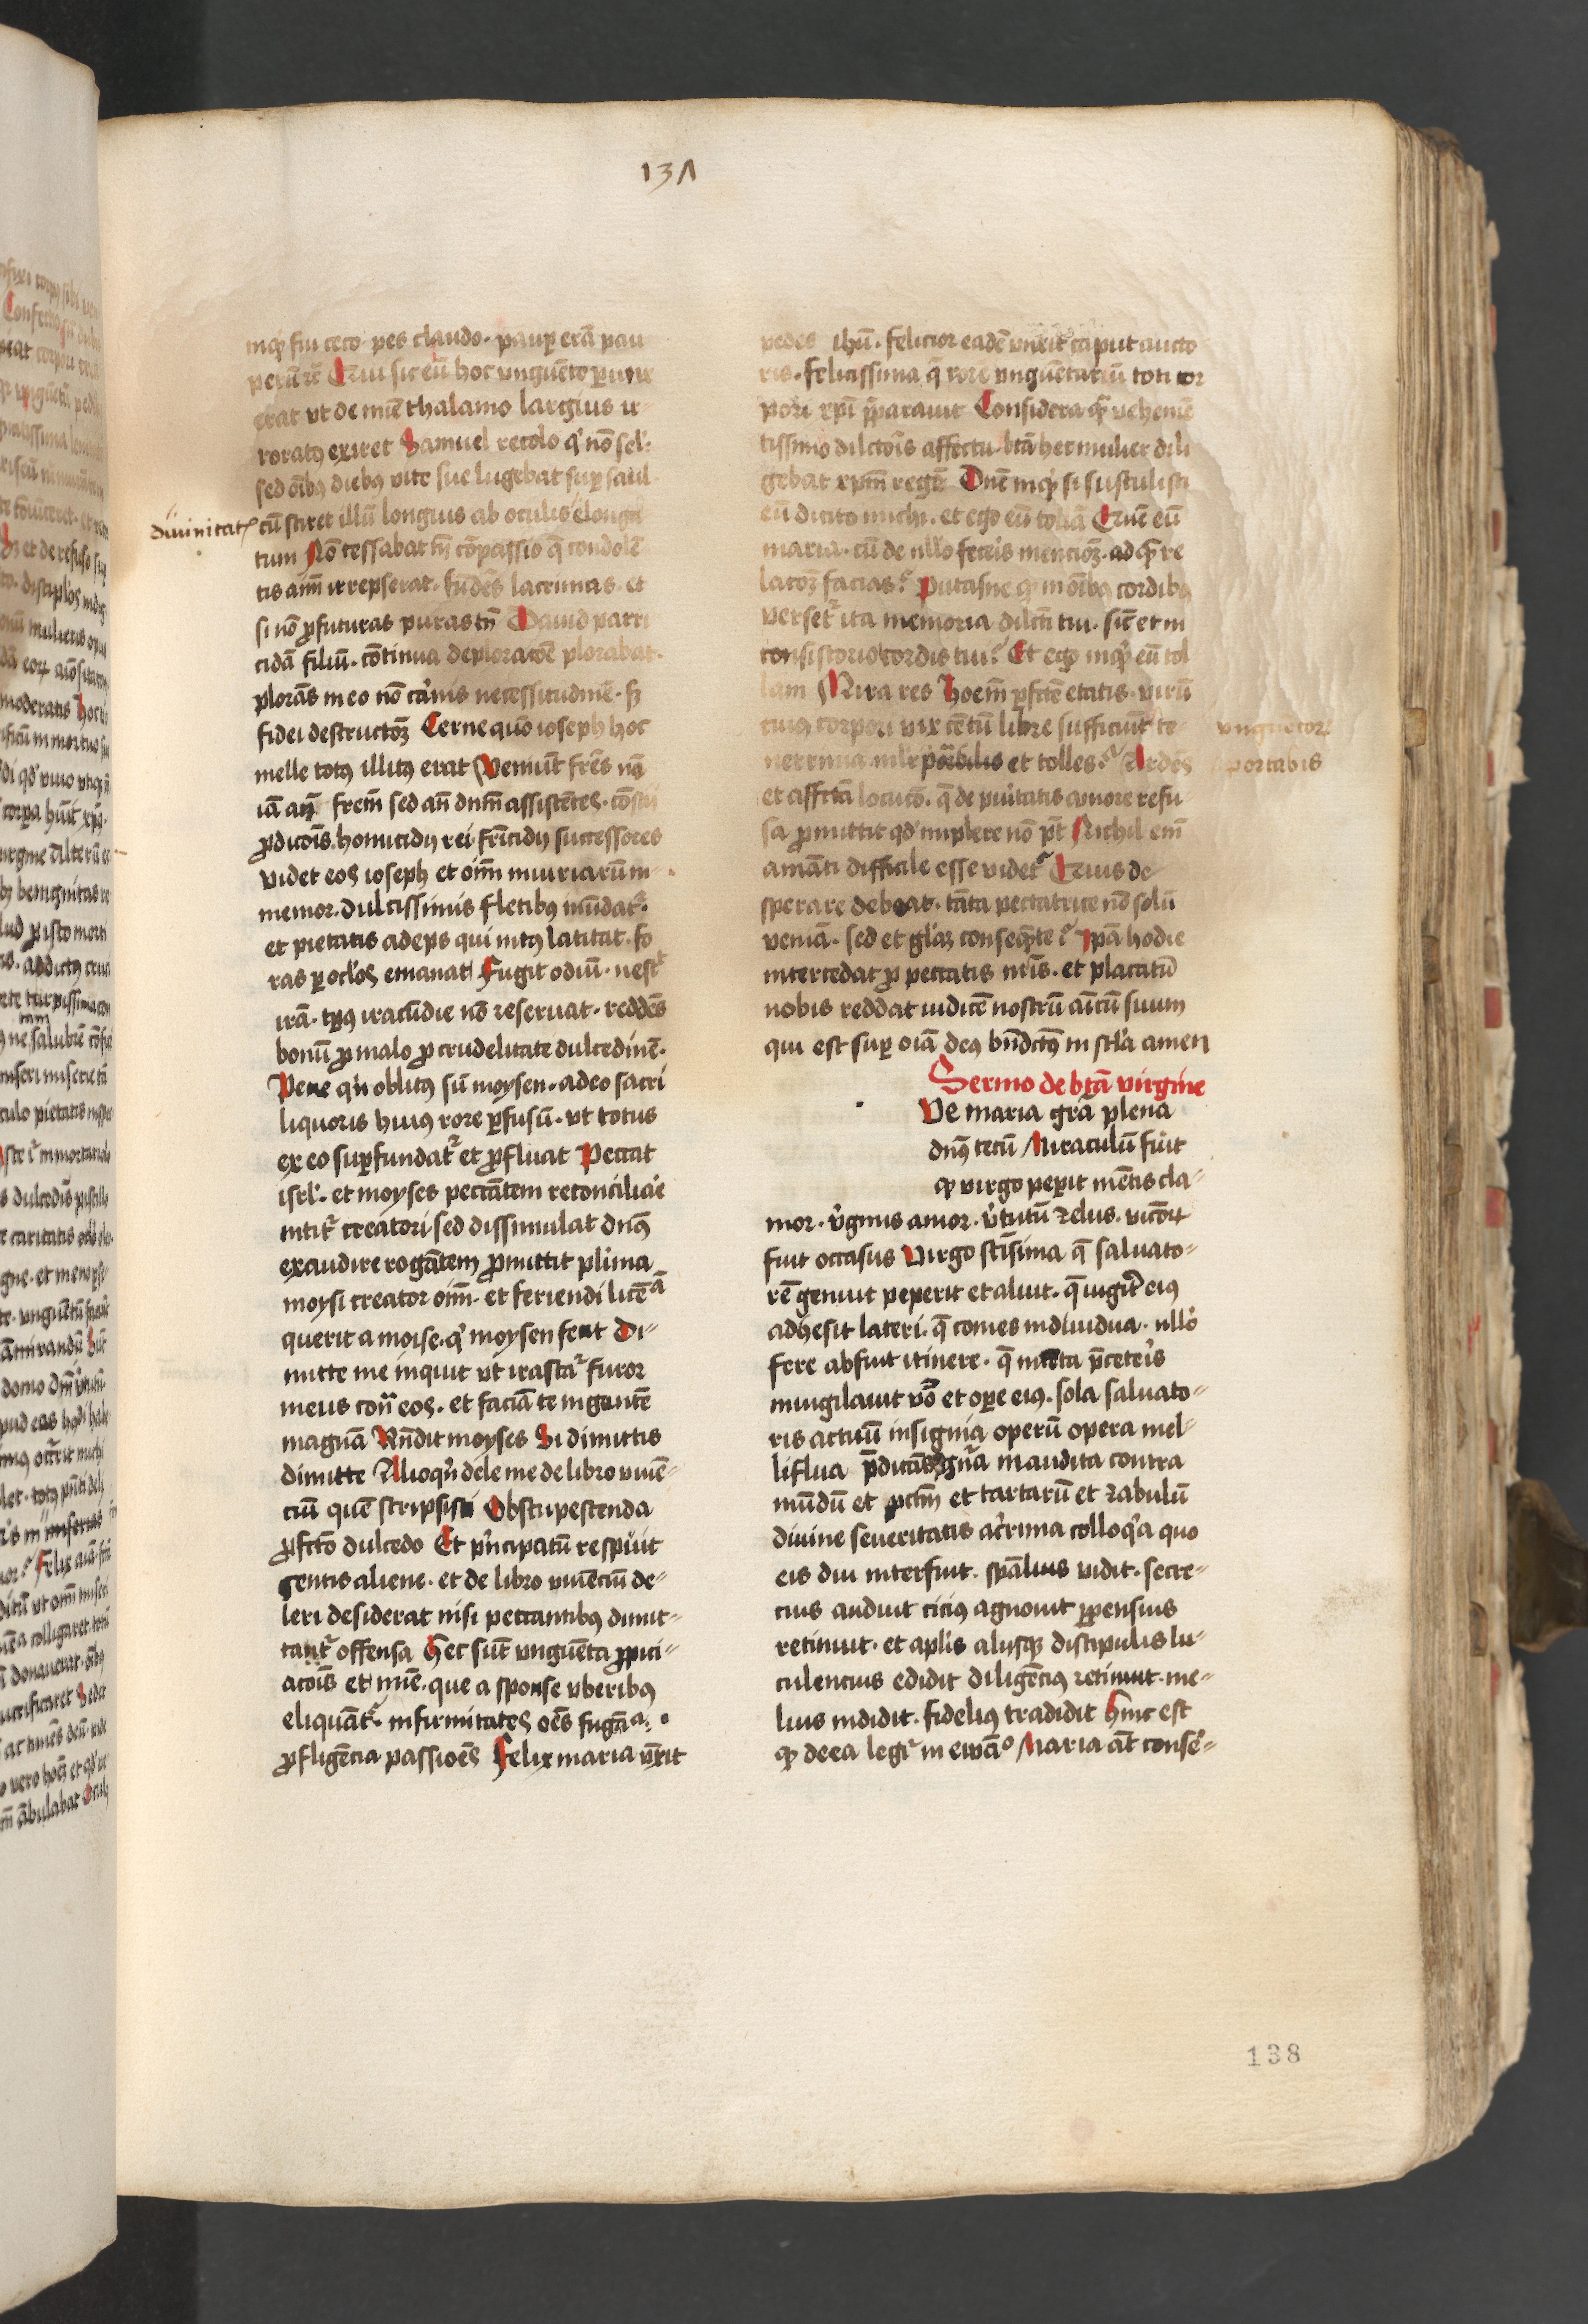 137
inqͥ fui ceco · pes claudo · paup erā pau
perū rē Cuiꝰ sic eū hoc vnguēto
erat vt de mīe thalamo largius ir
roratꝰ exiret Samuel recolo qͥ nō sel'
sed oībꝯ diebꝯ vite sue lugebat sup saul
diuinitatꝭ
cū sciret illū longius ab oculis elonga
tum Nō cessabat tn̄ cōpassio q̄ condolē
tis aīm irrepserat · fūdēs lacrimas · et
si nō ꝓfuturas puras tn̄ Dauid parri
cidā filiū · cōtinua deploratōe plorabat ·
plorās in eo nō cārnis necessitudinē · sꝫ
fidei destructoꝫ Cerne quō ioseph hoc
melle totꝰ illitꝰ erat Veniūt frēs nō
iā an̄ frem̄ sed an̄ dn̄m assistētes · cōscij
ꝓdicōis · homicidij rei · fr̄icidij successores
videt eos ioseph et oīm iniuriarū in
memor · dulcissimis fletibꝯ inūdatᷣ ·
et pietatis adeps qui intꝰ latitat · fo
ras ꝑ oclōs emanat Fugit odiū · nescᷣ
irā · tp̄ꝰ iracūdie nō reseruat · reddēs
bonū ꝓ malo ꝓ crudelitate dulcedinē ·
Pene qͥn oblitꝰ sū moysen · adeo sacri
liquoris huiꝰ rore ꝑfusū · vt totus
ex eo supfundatᷣ et ꝓfluat Peccat
isrl' · et moyses peccātem reconciliare
nititᷣ creatori sed dissimulat dn̄s
exaudire rogātem ꝓmittit plima
moysi creator oīm · et feriendi licēᵃ
querit a moise · qͥ moysen fecit Di⸗
mitte me inquit vt irascatᷣ furor
meus con̄ eos · et faciā te in gentē
magnā Rn̄dit moyses Si dimittis
dimitte Alioqͥn dele me de libro viuē⸗
ciū quē scripsisti Obstupescenda
ꝓfcō dulcedo Et pͥncipatū respuit
gentis aliene · et de libro viuenciū de⸗
leri desiderat nisi peccantibꝯ dimit⸗
tantᷣ offensa Hec sūt vnguēta ꝓpici⸗
acōis et mīe · que a sponse vberibꝯ
eliquātᷣ · infirmitates oēs fugācia
ꝓfligēcia passiōes Felix maria vn̄xit
pedes ihū · felicior eadē vnxit caput aucto
ris · felicissima q̄ rore vnguētariū toti cor
pori xp̄i p̄parauit Considera qͣ vehemē
tissimo dilctōis affectu · bt̄a hec mulier dili
gebat xp̄m regē Dn̄e inqͥt si sustulisti
eū dicito michi · et ego eū tollā Quē eū
maria · cū de nllo feceris mencioꝫ · ad qͣ re
lacōꝫ facias? Putasne qͥ in oībꝯ cordibꝯ
versetᷣ ita memoria dilcti tui · sicͭ et in
consistorio cordis tui? Et ego inqͥt eū tol
lam Mira res Hoīem ꝑfctē etatis · virū
cuiꝰ corpori vix cētū libre sufficiūt te⸗
vnguētorꝫ
nerrima mlr portabilis et tolles? Ardēs
portabis
et affctā locucō · q̄ de puritatis amore refu⸗
sa ꝓmittit qd' implere nō pt̄ Nichil em̄
amāti difficile esse videtᷣ Quis de
sperare debeat · tāta peccatrice nō solū
veniā · sed et gl'aꝫ conseqͣnte? Ipā hodie
intercedat ꝓ peccatis nr̄is · et placatū
nobis reddat iudicē nostrū aīcū suum
qui est sup oīa deꝰ bn̄dctꝰ in scl'a amen
Sermo de bt̄a virgine
Ve maria grā plena
dn̄s tecū Miraculū fuit
qͥ virgo peperit mētis cla⸗
mor · vͥginis amor · vͥtutū zelus · vicōrꝫ
fuit occasus Virgo sctīssima q̄ saluato⸗
rē genuit peperit et aluit · q̄ iugitᷣ eiꝰ
adhesit lateri · q̄ comes indiuidua · nllō
fere abfuit itinere · q̄ p̄ceteris
inuigilauit v̄bo et oꝑe eiꝰ · sola saluato⸗
ris actuū insignia operū opera mel⸗
liflua p̄dicās inaudita contra
mūdū et pctm̄ et tartarū et zabulū
diuine seueritatis acrima colloqͥa quo
eis diu interfuit · spālius vidit · secre⸗
cius audiuit ciciꝰ agnouit ꝓpensius
retinuit · et aplis alijsqꝫ discipulis lu⸗
culencius edidit diligēciꝰ retinuit · me⸗
lius indidit · fideliꝰ tradidit Hinc est
qͥ de ea legitᷣ in ewāᵒ Maria āt consē⸗
138